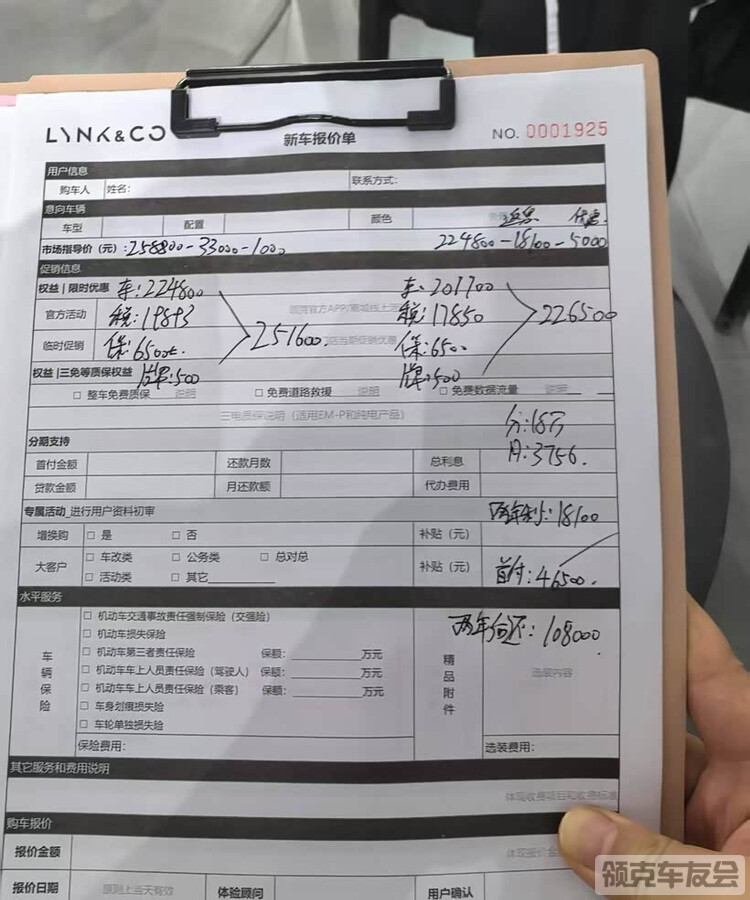 LYNK&CO 新车报价单 NO. 0001925
用户信息
购车人 姓名: 联系方式:
意向车辆
车型 配置 颜色 返息 优惠
市场指导价（元）: 258800-33000-1000 224800-18100-5000
促销信息
权益 | 限时优惠 车: 224800 车: 201700
官方活动 税: 19893 251600 领克官方APP/商城线上 税: 17850 226500
临时促销 保: 6500 店当期促销优惠 保: 6500
权益 | 三免等质保权益 牌: 500 牌: 500
□ 整车免费质保 说明 □ 免费道路救援 说明 □ 免费数据流量 说明
三电质保说明（适用EM-P和纯电产品） 分: 18万
分期支持 月: 3756.
首付金额 还款月数 总利息
贷款金额 月还款额 代办费用
专属活动_进行用户资料初审 两年利: 18100
增换购 □ 是 □ 否 补贴（元）
大客户 □ 车改类 □ 公务类 □ 总对总 补贴（元） 首付: 46500.
□ 活动类 □ 其它
水平服务
□ 机动车交通事故责任强制保险（交强险） 两年后还: 108000
□ 机动车损失保险
车辆保险 □ 机动车第三者责任保险 保额: 万元 精品附件 选装内容
□ 机动车车上人员责任保险（驾驶人） 保额: 万元
□ 机动车车上人员责任保险（乘客） 保额: 万元
□ 车身划痕损失险
□ 车轮单独损失险
保险费用: 选装费用:
其它服务和费用说明
体现收费项目和收费标准
购车报价
报价金额 体现报价金
报价日期 原则上当天有效 体验顾问 用户确认
领克车友会